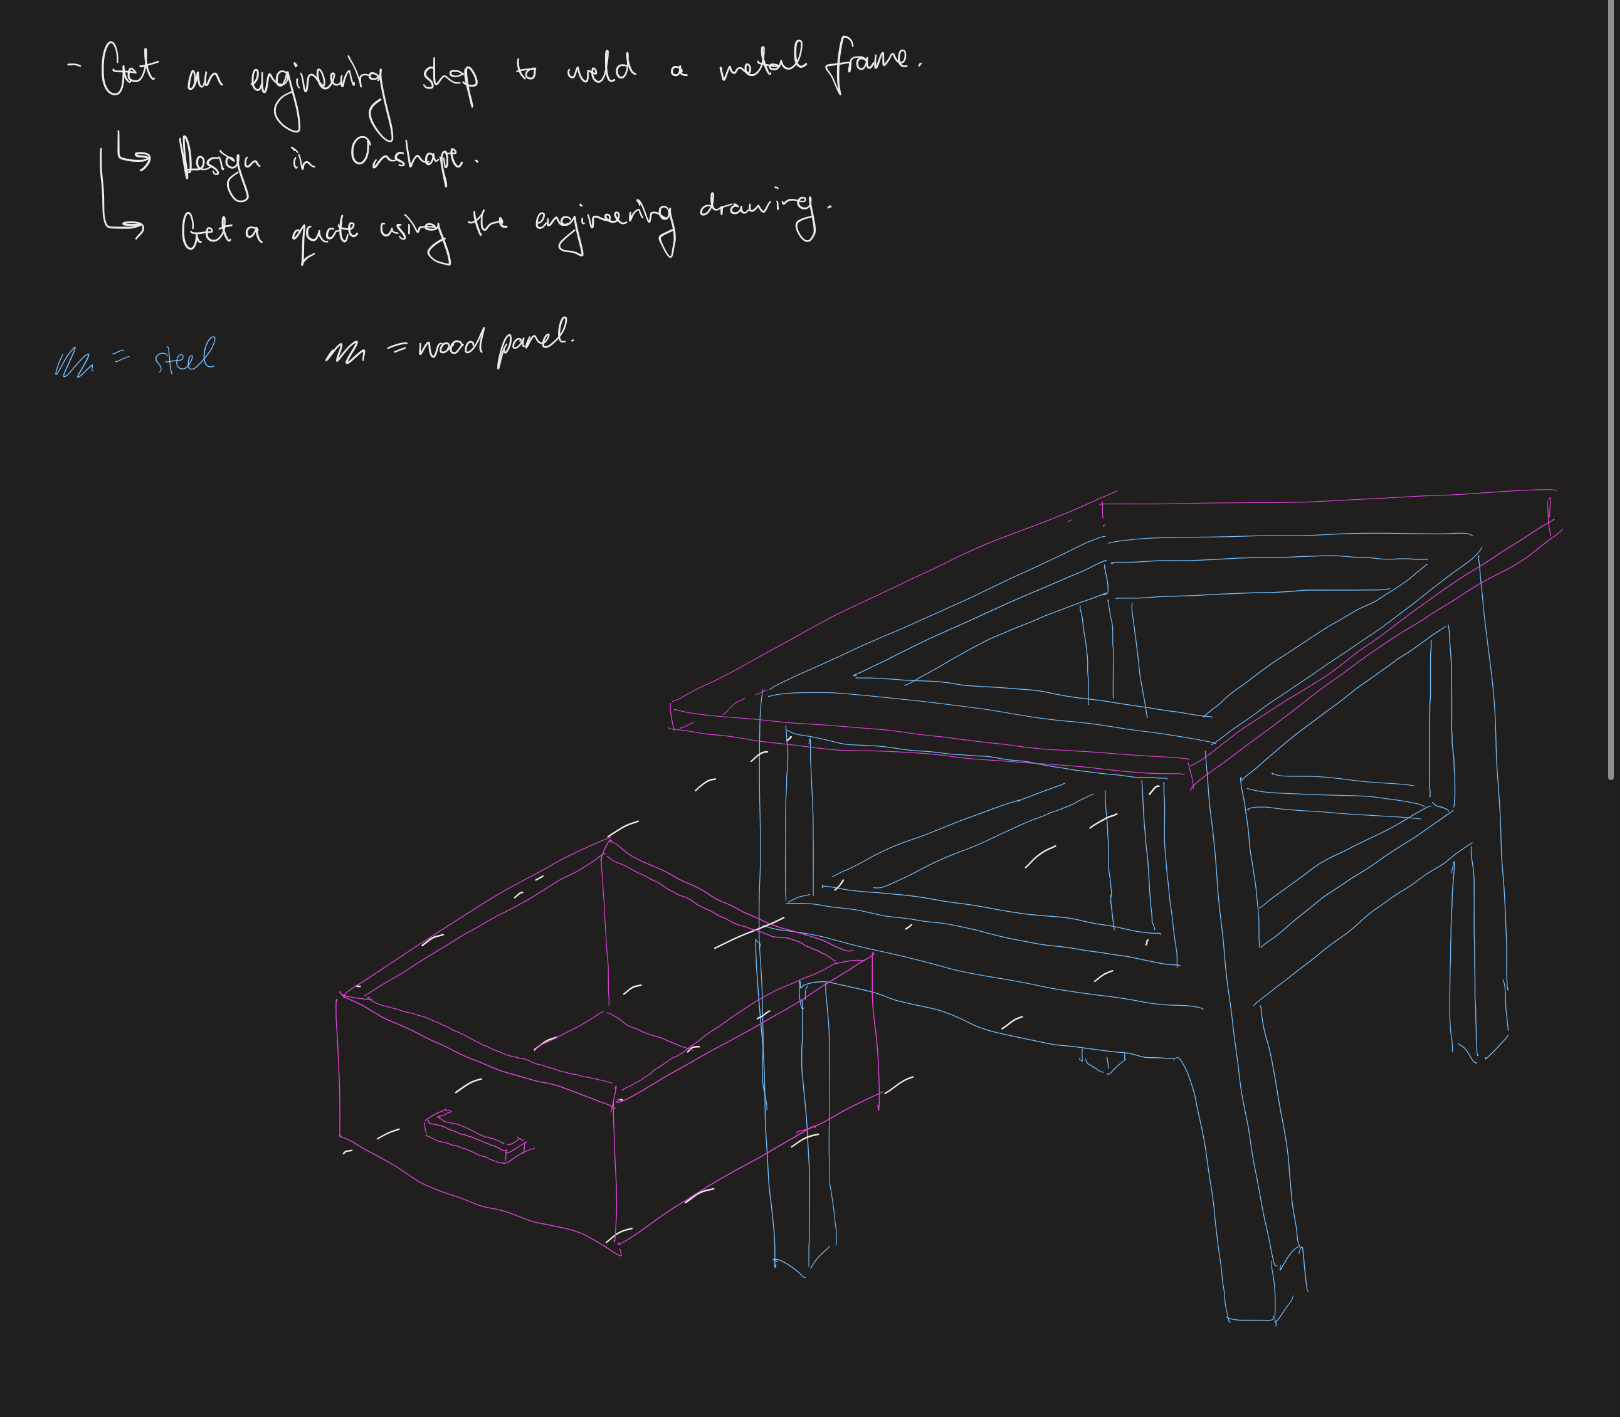 - Get an engineering shop to weld a metal frame.
↳ Design in Onshape.
↳ Get a quote using the engineering drawing.
= steel = wood panel.